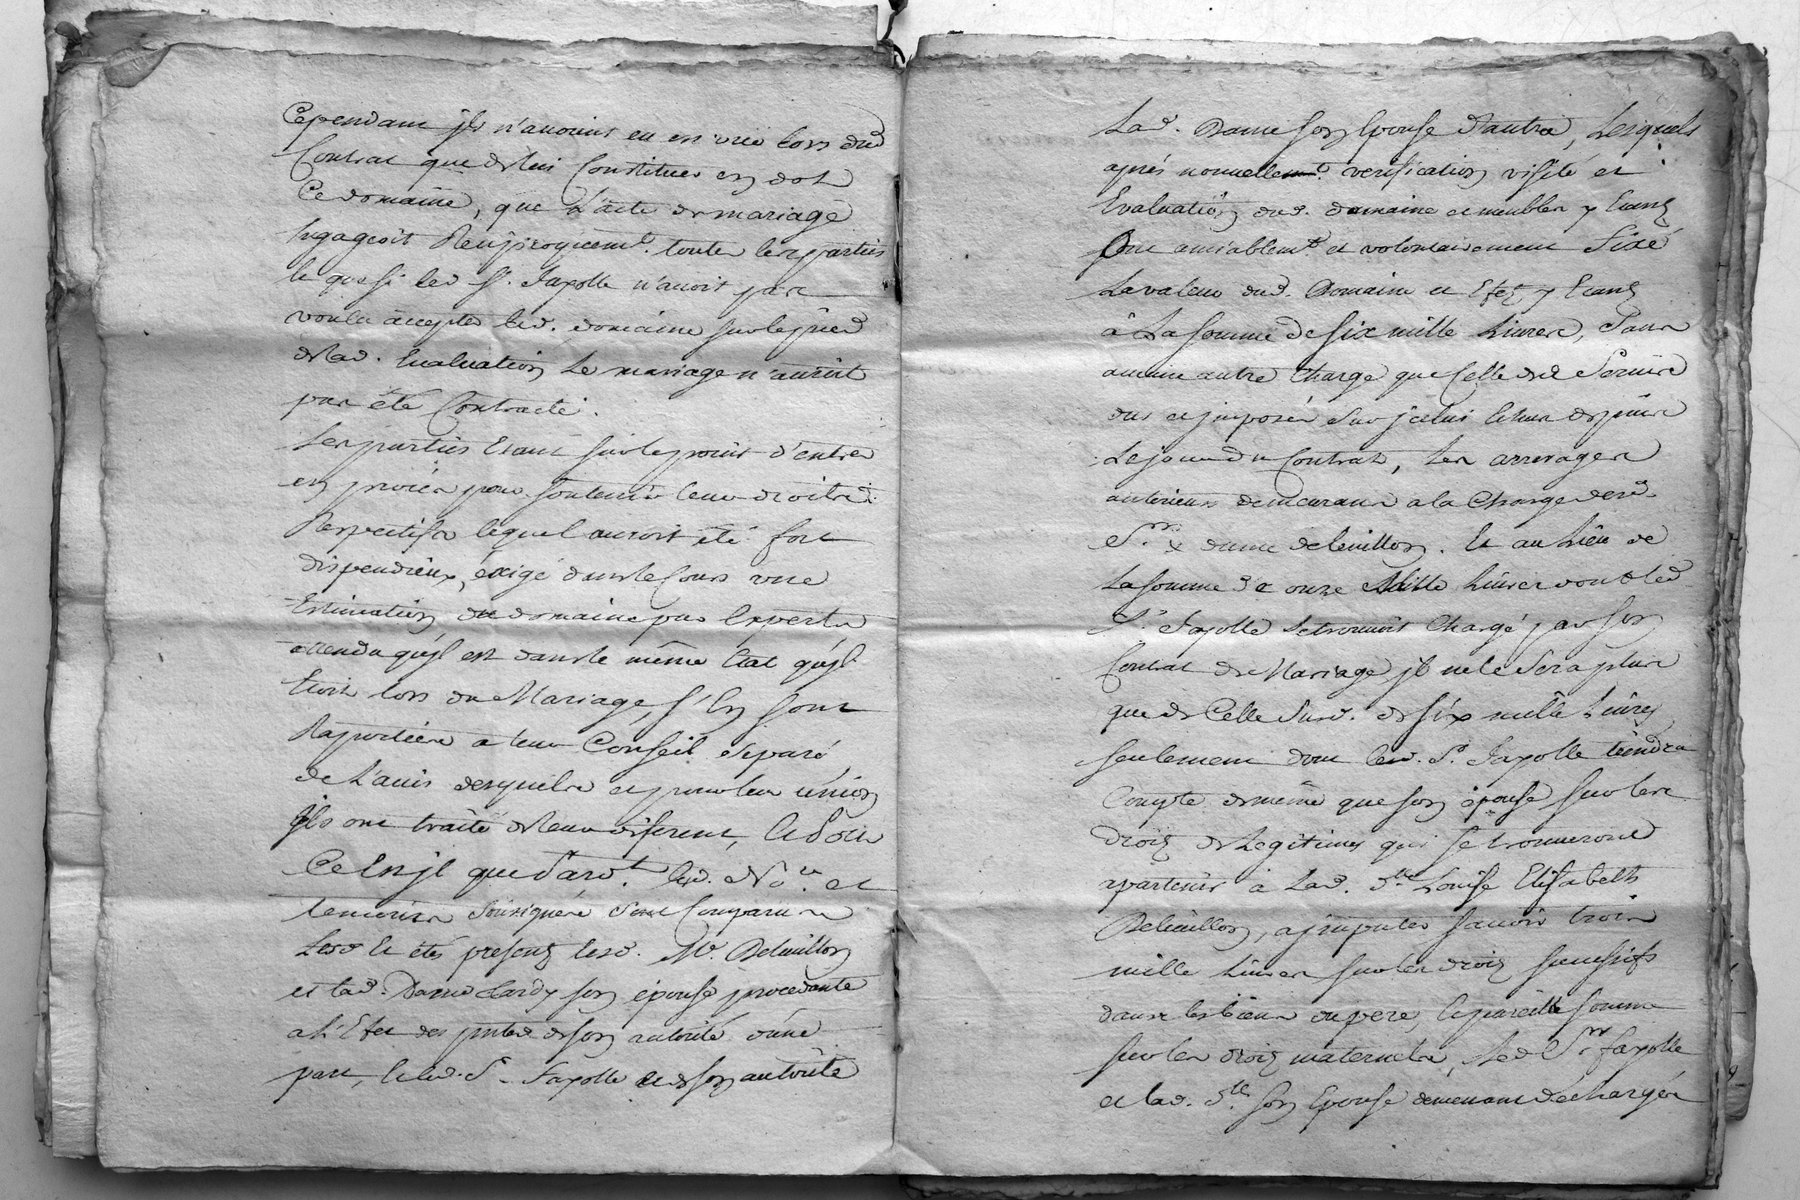 Cependant jls n'auoint eu en vüe lors dud
Contrat que de lui Constituer en dot
Ce domaine, que L'acte de mariage
Engageoit Reciproquem.t toute les parties
le que si led S.r Fayolle n'auoit pas
voulu accepter led. domaine sur le pied
de lad. Evaluation Le mariage n'auroit
pas été Contracté.
Les parties Etant sur le point d'entrer
en procés pour soutenir leur droits
Respectifs lequel auroit été fort
dispendieux, exigé dans le Cours une
Estimation du domaine par Experts
attendu qu'jl est dans le même Etat qu'jl
Etoit lors du Mariage, s'En sont
Raportées a leur Conseil separé,
de L'auis desquels et pour leur union
jls ont traité de leur diferent,
Ce Enjt que Pard.t led. No.re et
temoins soussignés sont Comparus
Led et étés presents lesd. M.r Deleuillon
et lad. Dame Clardy son épouse procedante
a L'Efet des pntes de son autorité d'une
part, et led. S.r Fayolle et de son autorité
Lad. Dame son Epouse d'autre, Lesquels
aprés nouvellem.t verification visité et
Evaluation dud. domaine et meubles y Etants
ont amiablem.t et volontairement Fixé
La valeur dud. Domaine et Efets y Etants
à La somme de six mille Livres, sans
aucune autre charge que Celle des Seruice
dus et jmposés sur jcelui le tout depuis
Le jour du Contrat, Les arrerages
anterieurs demeurant a la Charge desd.
S.r & dame deleuillon. Et au Lieu de
La somme de onze Mille Livres dont led
S.r Fayolle se trouuoit Chargé par son
Contrat de Mariage jl ne le sera plus
que de Celle susd. de six mille Liures
seulement dont led. S.r Fayolle tiendra
Compte de même que son épouse sur les
droits de Legitimes qui se trouueront
apartenir à Lad. d.lle Louise Elisabeth
Deleuillon, a jmputer sauoir trois
mille Liures sur les droits sucessifs
dans les biens du pere, et pareille somme
sur les droits maternels, led S.r Fayolle
et lad. d.lle son Epouse demeurant dechargés